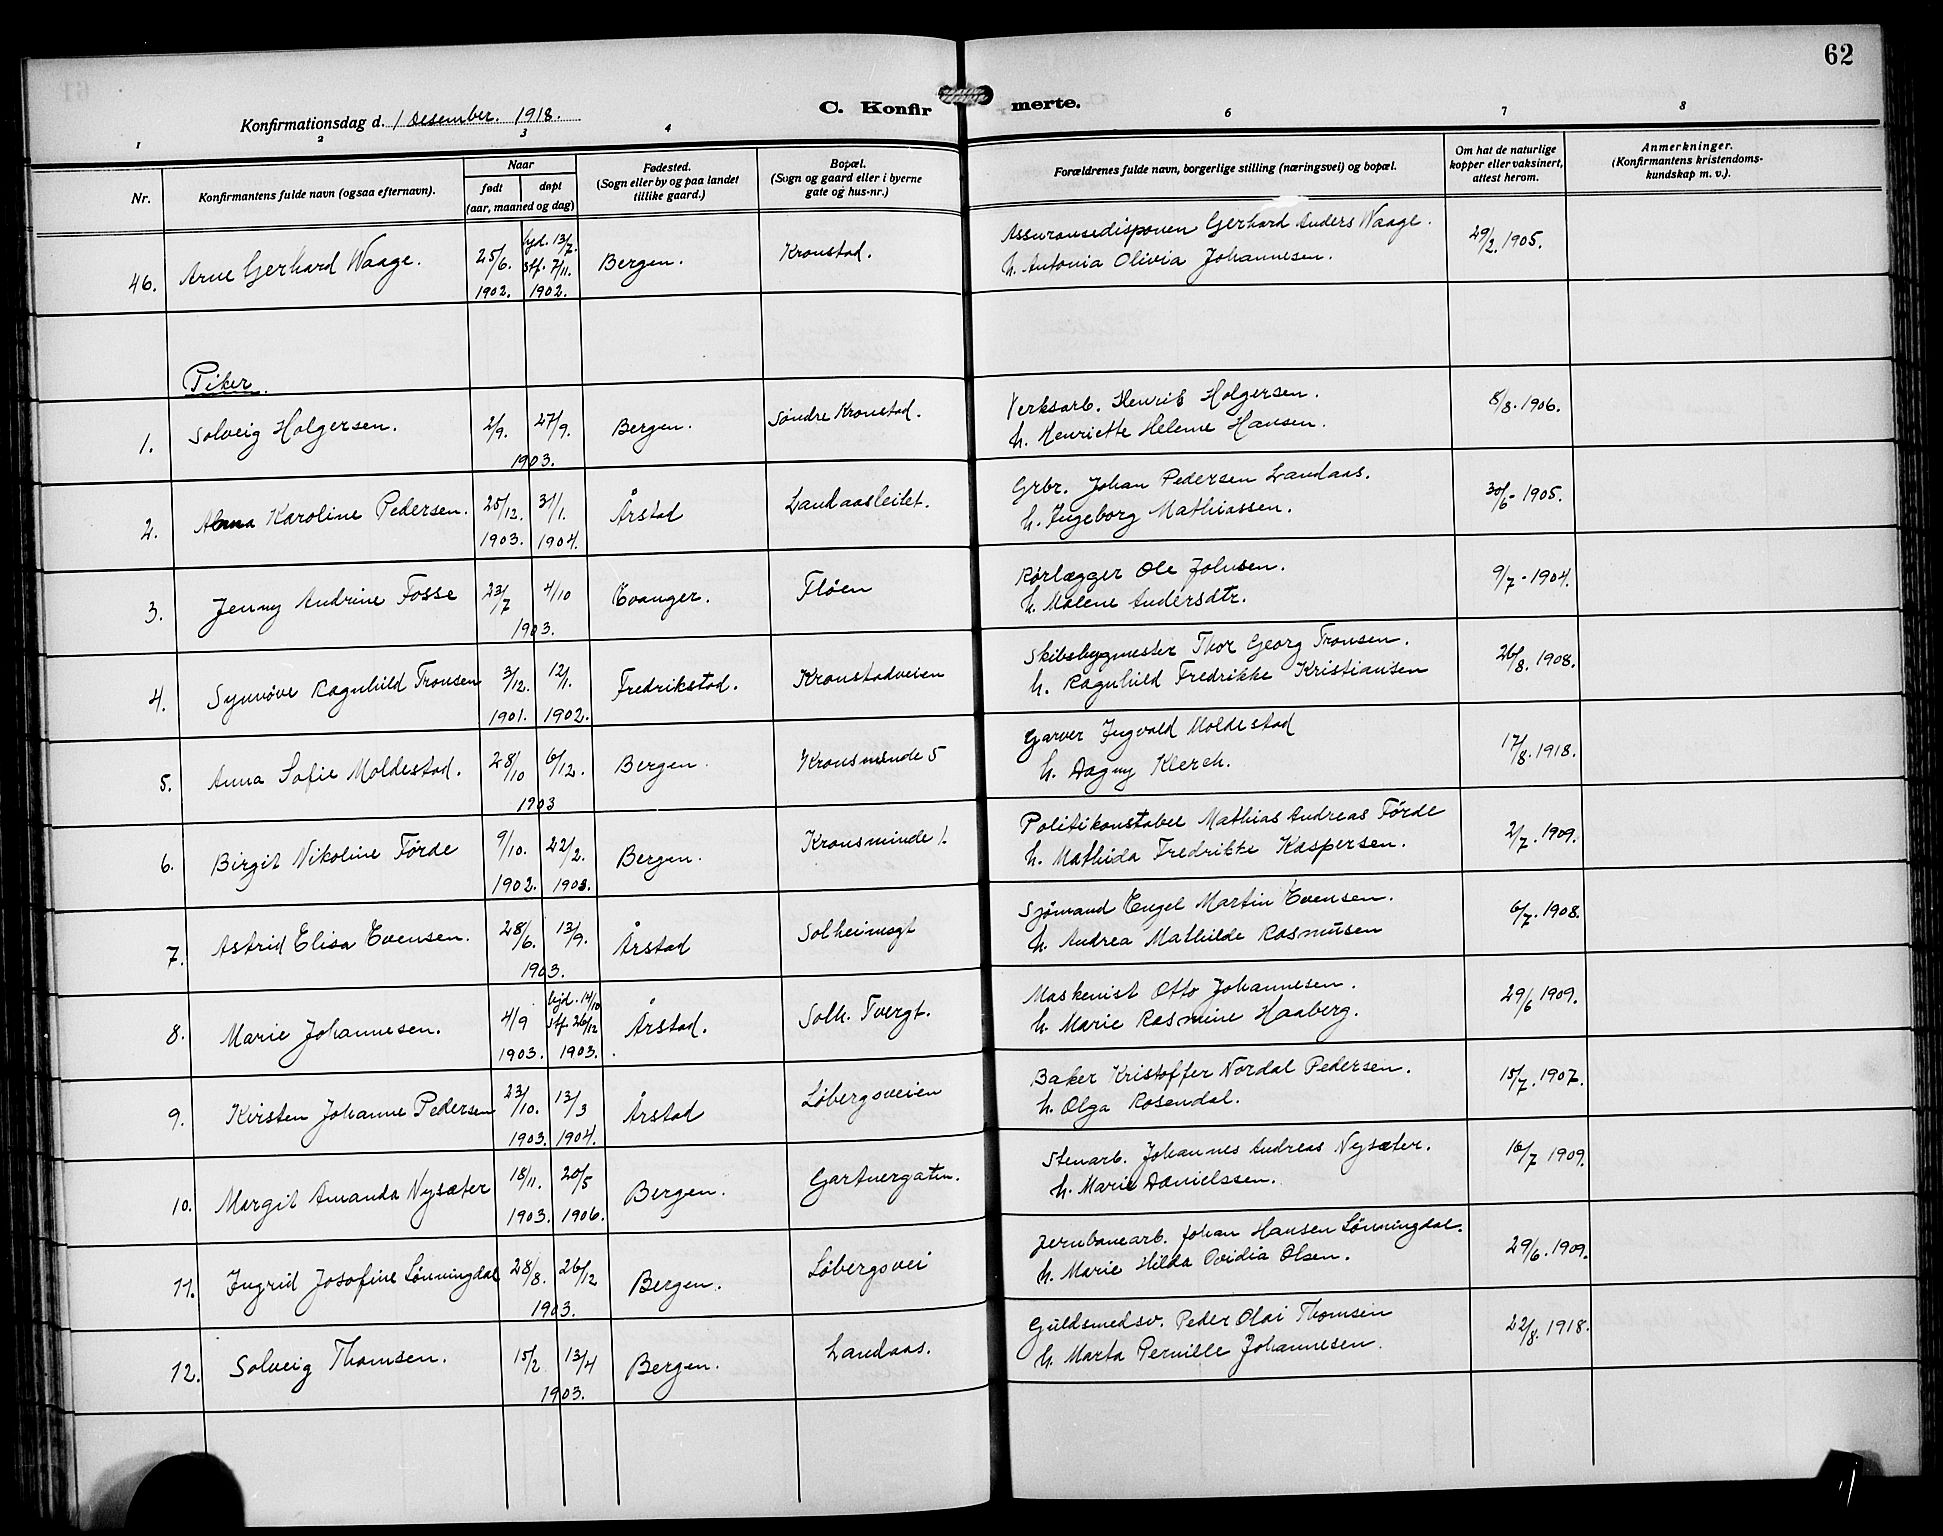 62
C. Konfirmerte.
Konfirmationsdag d. 1 Desember. 1918.
1 2 3 4 6 7 8
Nr.
Konfirmantens fulde navn (ogsaa efternavn).
Naar
født døpt
(aar, maaned og dag)
Fødested.
(Sogn eller by og paa landet
tillike gaard.)
Bopæl.
(Sogn og gaard eller i byerne
gate og hus-nr.)
Forældrenes fulde navn, borgerlige stilling (næringsvei) og bopæl.
Om hat de naturlige
kopper eller vaksinert,
attest herom.
Anmerkninger.
(Konfirmantens kristendoms-
kundskap m. v.).
46. Arne Gerhard Waage. 25/6. 1902. hjd. 13/7. stf. 7/11. 1902. Bergen. Kronstad. Assuransedisponen Gerhard Anders Waage. 29/2. 1905.
h. Antonia Olivia Johannesen.
Piker.
1. Solveig Holgersen. 2/9. 27/9. 1903. Bergen. Søndre Kronstad. Verksarb. Henrik Holgersen. 8/8. 1906.
h. Henriette Helene Hansen.
2. Karoline Pedersen. 25/12. 1903. 31/1. 1904. Årstad Landaasleitet. Grbr. Johan Pedersen Landaas. 30/6 - 1905.
h. Ingeborg Mathiassen.
3. Jenny Andrine Fosse 23/7 4/10 1903. Evanger. Fløen Rørlægger Ole Johnsen. 9/7 - 1904.
h. Malene Andersdtr.
4. Synnøve Ragnhild Tronsen 3/12. 1901. 12/1. 1902. Fredrikstad. Kronstadveien Skibsbygmester Thor Georg Tronsen. 26/8. 1908.
h. Ragnhild Fredrikke Kristiansen
5. Anna Sofie Moldestad. 28/10 6/12. 1903 Bergen. Kronsminde 5 Garver Ingvald Moldestad 17/8. 1918.
h. Dagny Klerch.
6. Birgit Nikoline Førde 9/10. 1902. 22/2. 1903. Bergen. Kronsminde 1. Politikonstabel Mathias Andreas Førde 2/7. 1909.
h. Mathida Fredrikke Kaspersen.
7. Astrid Elisa Evensen. 28/6. 13/9. 1903. Årstad Solheimsgt Sjømand Engel Martin Evensen. 6/7. 1908.
h. Andrea Mathilde Rasmusen
8. Marie Johannesen. 4/9 1903. hjd. 14/10 stf. 26/12 1903. Årstad. Solh. Tvergt. Maskenist Otto Johannesen. 29/6 1909.
h. Marie Rasmine Haaberg.
9. Kirsten Johanne Pedersen 23/10. 1903. 13/3 1904. Årstad Løbergsveien Baker Kristoffer Nordal Pedersen. 15/7. 1907.
h. Olga Rosendal.
10. Margit Amanda Nysæter 18/11. 1903. 20/5 1906. Bergen. Gartnergaten. Stenarb. Johannes Andreas Nysæter. 16/7 1909.
h. Marie Danielssen.
11. Ingrid Josefine Lønningdal 28/8. 26/12 1903. Bergen. Løbergsvei Jernbanearb. Johan Hansen Lønningdal. 29/6. 1909.
h. Marie Hilda Ovidia Olsen.
12. Solveig Thomsen. 15/2. 13/4 1903. Bergen. Landaas. Guldsmedsv. Peder Olai Thomsen 22/8. 1918.
h. Marta Pernille Johannesen.